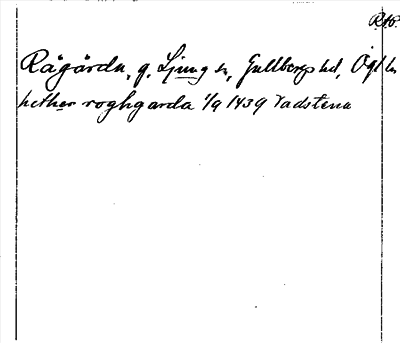 RAP.
Rågårda, g. Ljungs sn, Gullbergs hd, Ögl. län
hether roghgarda 1/9 1439 Vadstena